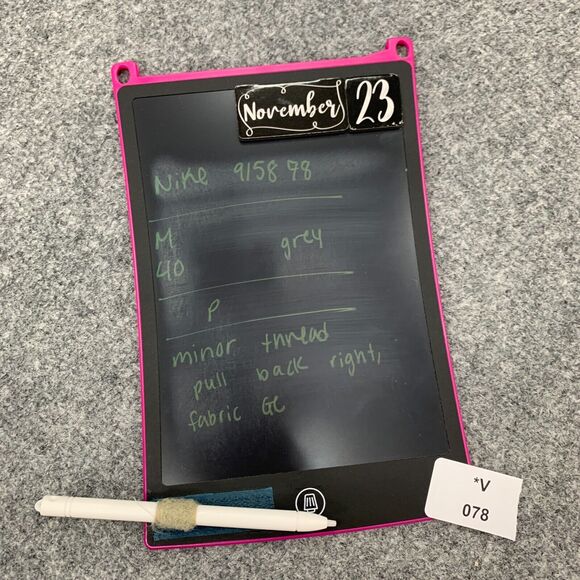 November 23
Nike 915878
M grey
40
P
minor thread
pull back right,
fabric GC
*V
078